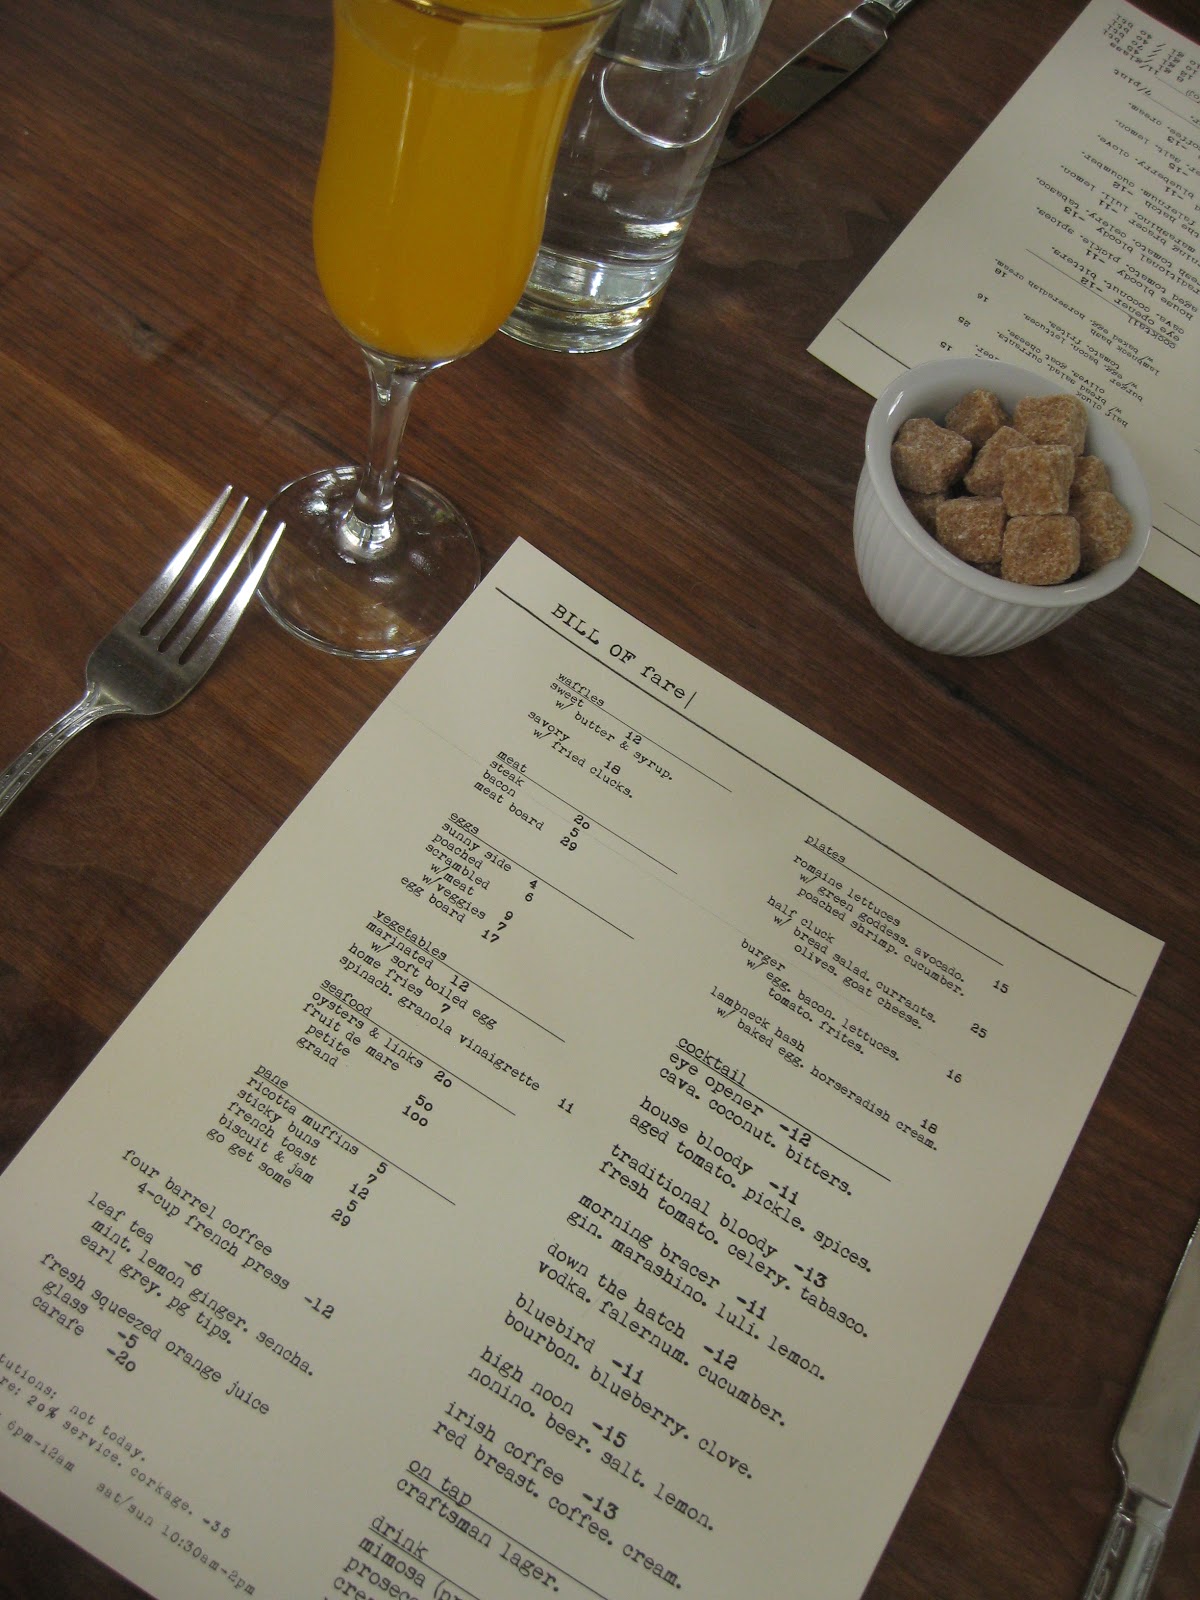 BILL OF fare|
waffles
sweet 12
w/ butter & syrup.
savory 18
w/ fried clucks.
meat
steak 20
bacon 5
meat board 29
eggs
sunny side 4
poached 6
scrambled
w/meat 9
w/veggies 7
egg board 17
vegetables
marinated 12
w/ soft boiled egg
home fries 7
spinach. granola vinaigrette 11
seafood
oysters & links 20
fruit de mare
petite 50
grand 100
pane
ricotta muffins 5
sticky buns 7
french toast 12
biscuit & jam 5
go get some 29
four barrel coffee
4-cup french press -12
leaf tea -6
mint. lemon ginger. sencha.
earl grey. pg tips.
fresh squeezed orange juice
glass -5
carafe -20
not today.
20% service. corkage. -35
6pm-12am sat/sun 10:30am-2pm
plates
romaine lettuces 15
w/ green goddess. avocado.
poached shrimp. cucumber.
half cluck 25
w/ bread salad. currants.
olives. goat cheese.
burger 16
w/ egg. bacon. lettuces.
tomato. frites.
lambneck hash 18
w/ baked egg. horseradish cream.
cocktail
eye opener -12
cava. coconut. bitters.
house bloody -11
aged tomato. pickle. spices.
traditional bloody -13
fresh tomato. celery. tabasco.
morning bracer -11
gin. marashino. luli. lemon.
down the hatch -12
vodka. falernum. cucumber.
bluebird -11
bourbon. blueberry. clove.
high noon -15
nonino. beer. salt. lemon.
irish coffee -13
red breast. coffee. cream.
on tap
craftsman lager.
drink
mimosa